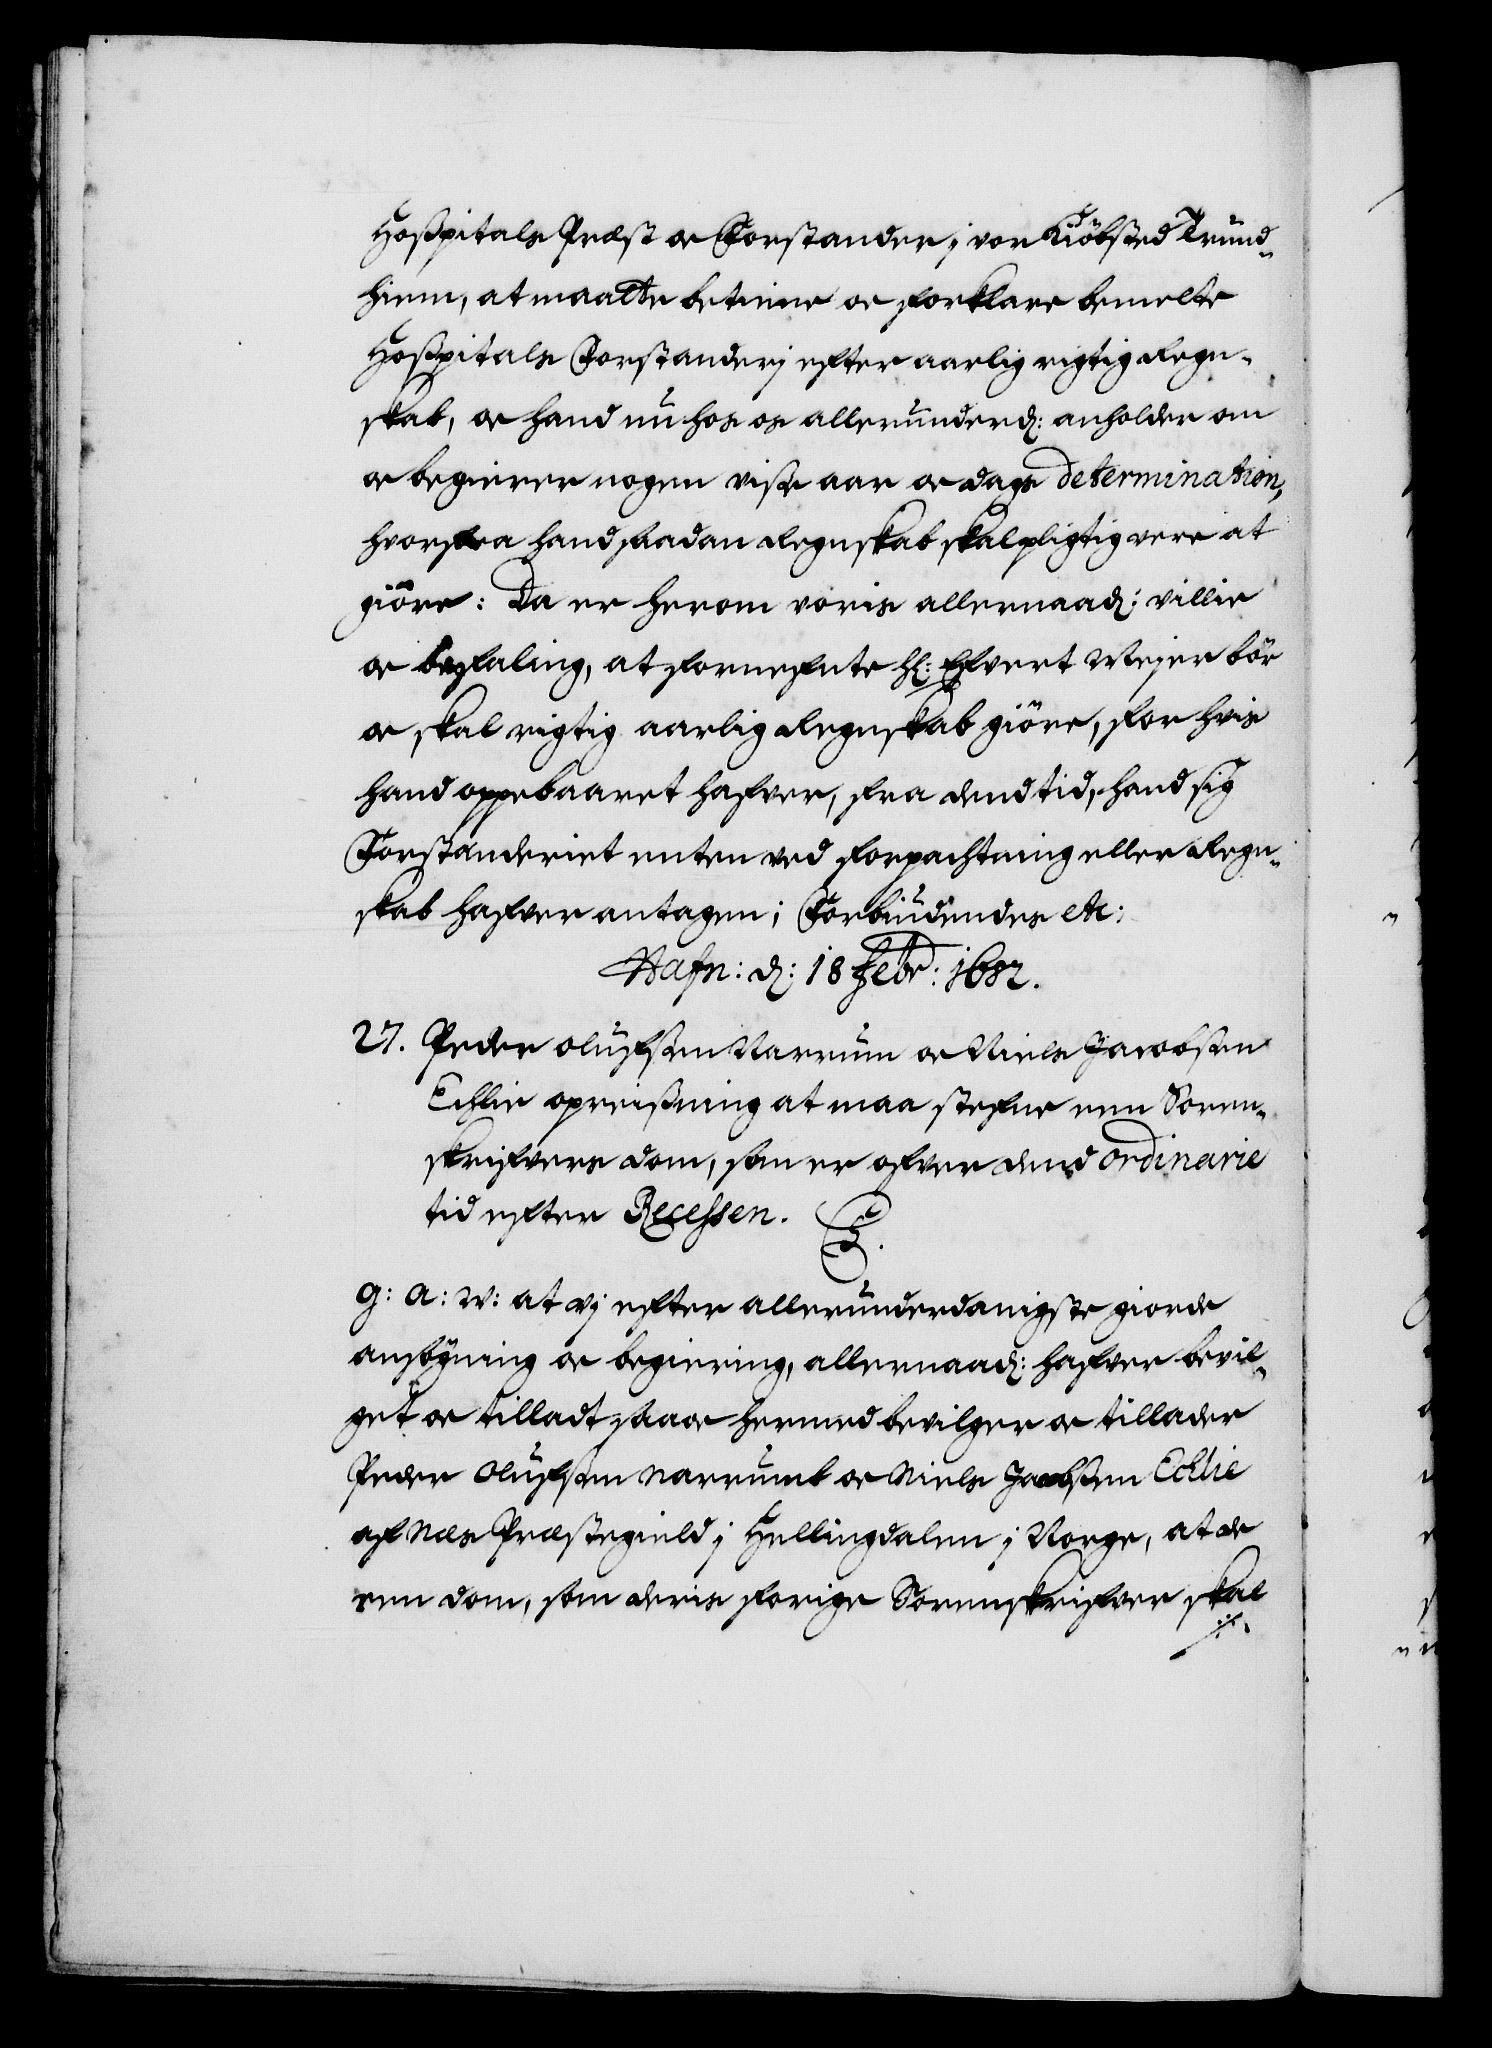 Hoßpitals Præst oc Forstander j vor Kiöbsted Trund-
hiem, at maatte betiene oc forklare bemelte
Hoßpitals Forstanderj efter aarlig rigtig Regn-
skab, oc hand nu hos os allerunderd: anholder om
oc begierer nogen visse aar oc dags determination,
hvorfra hand saadan Regnskab skal pligtig vere at
giöre: Da er herom voris allernaad: villie
oc befaling, at forneffnte Hl: Effvert Mejer bör
oc skal rigtig aarlig Regnskab giöre, for hvis
hand oppebaaret hafver, fra dend tid, hand sig
Forstanderiet enten ved forpachtning eller Regn-
skab hafver antagen; Forbiudendes etc:
Hafn: d: 18 Febr: 1682.
27. Peder Olufsen Narrum oc Niels Jacobsen
Echlie opreißning at maa stefne een Soren-
skrifvers dom, som er ofver dend ordinarie
tid efter Recessen.
C.
G: A: W: at vj efter allerunderdanigste giorde
ansögning oc begiering, allernaad: hafver bevil-
get oc tilladt saa oc hermed bevilger oc tillader
Peder Olufsen Narrumb oc Niels Jacobsen Echlie
af Næs Præstegield j Hellingdalen j Norge, at de
een dom, som deris forige Sorenskrifver skal